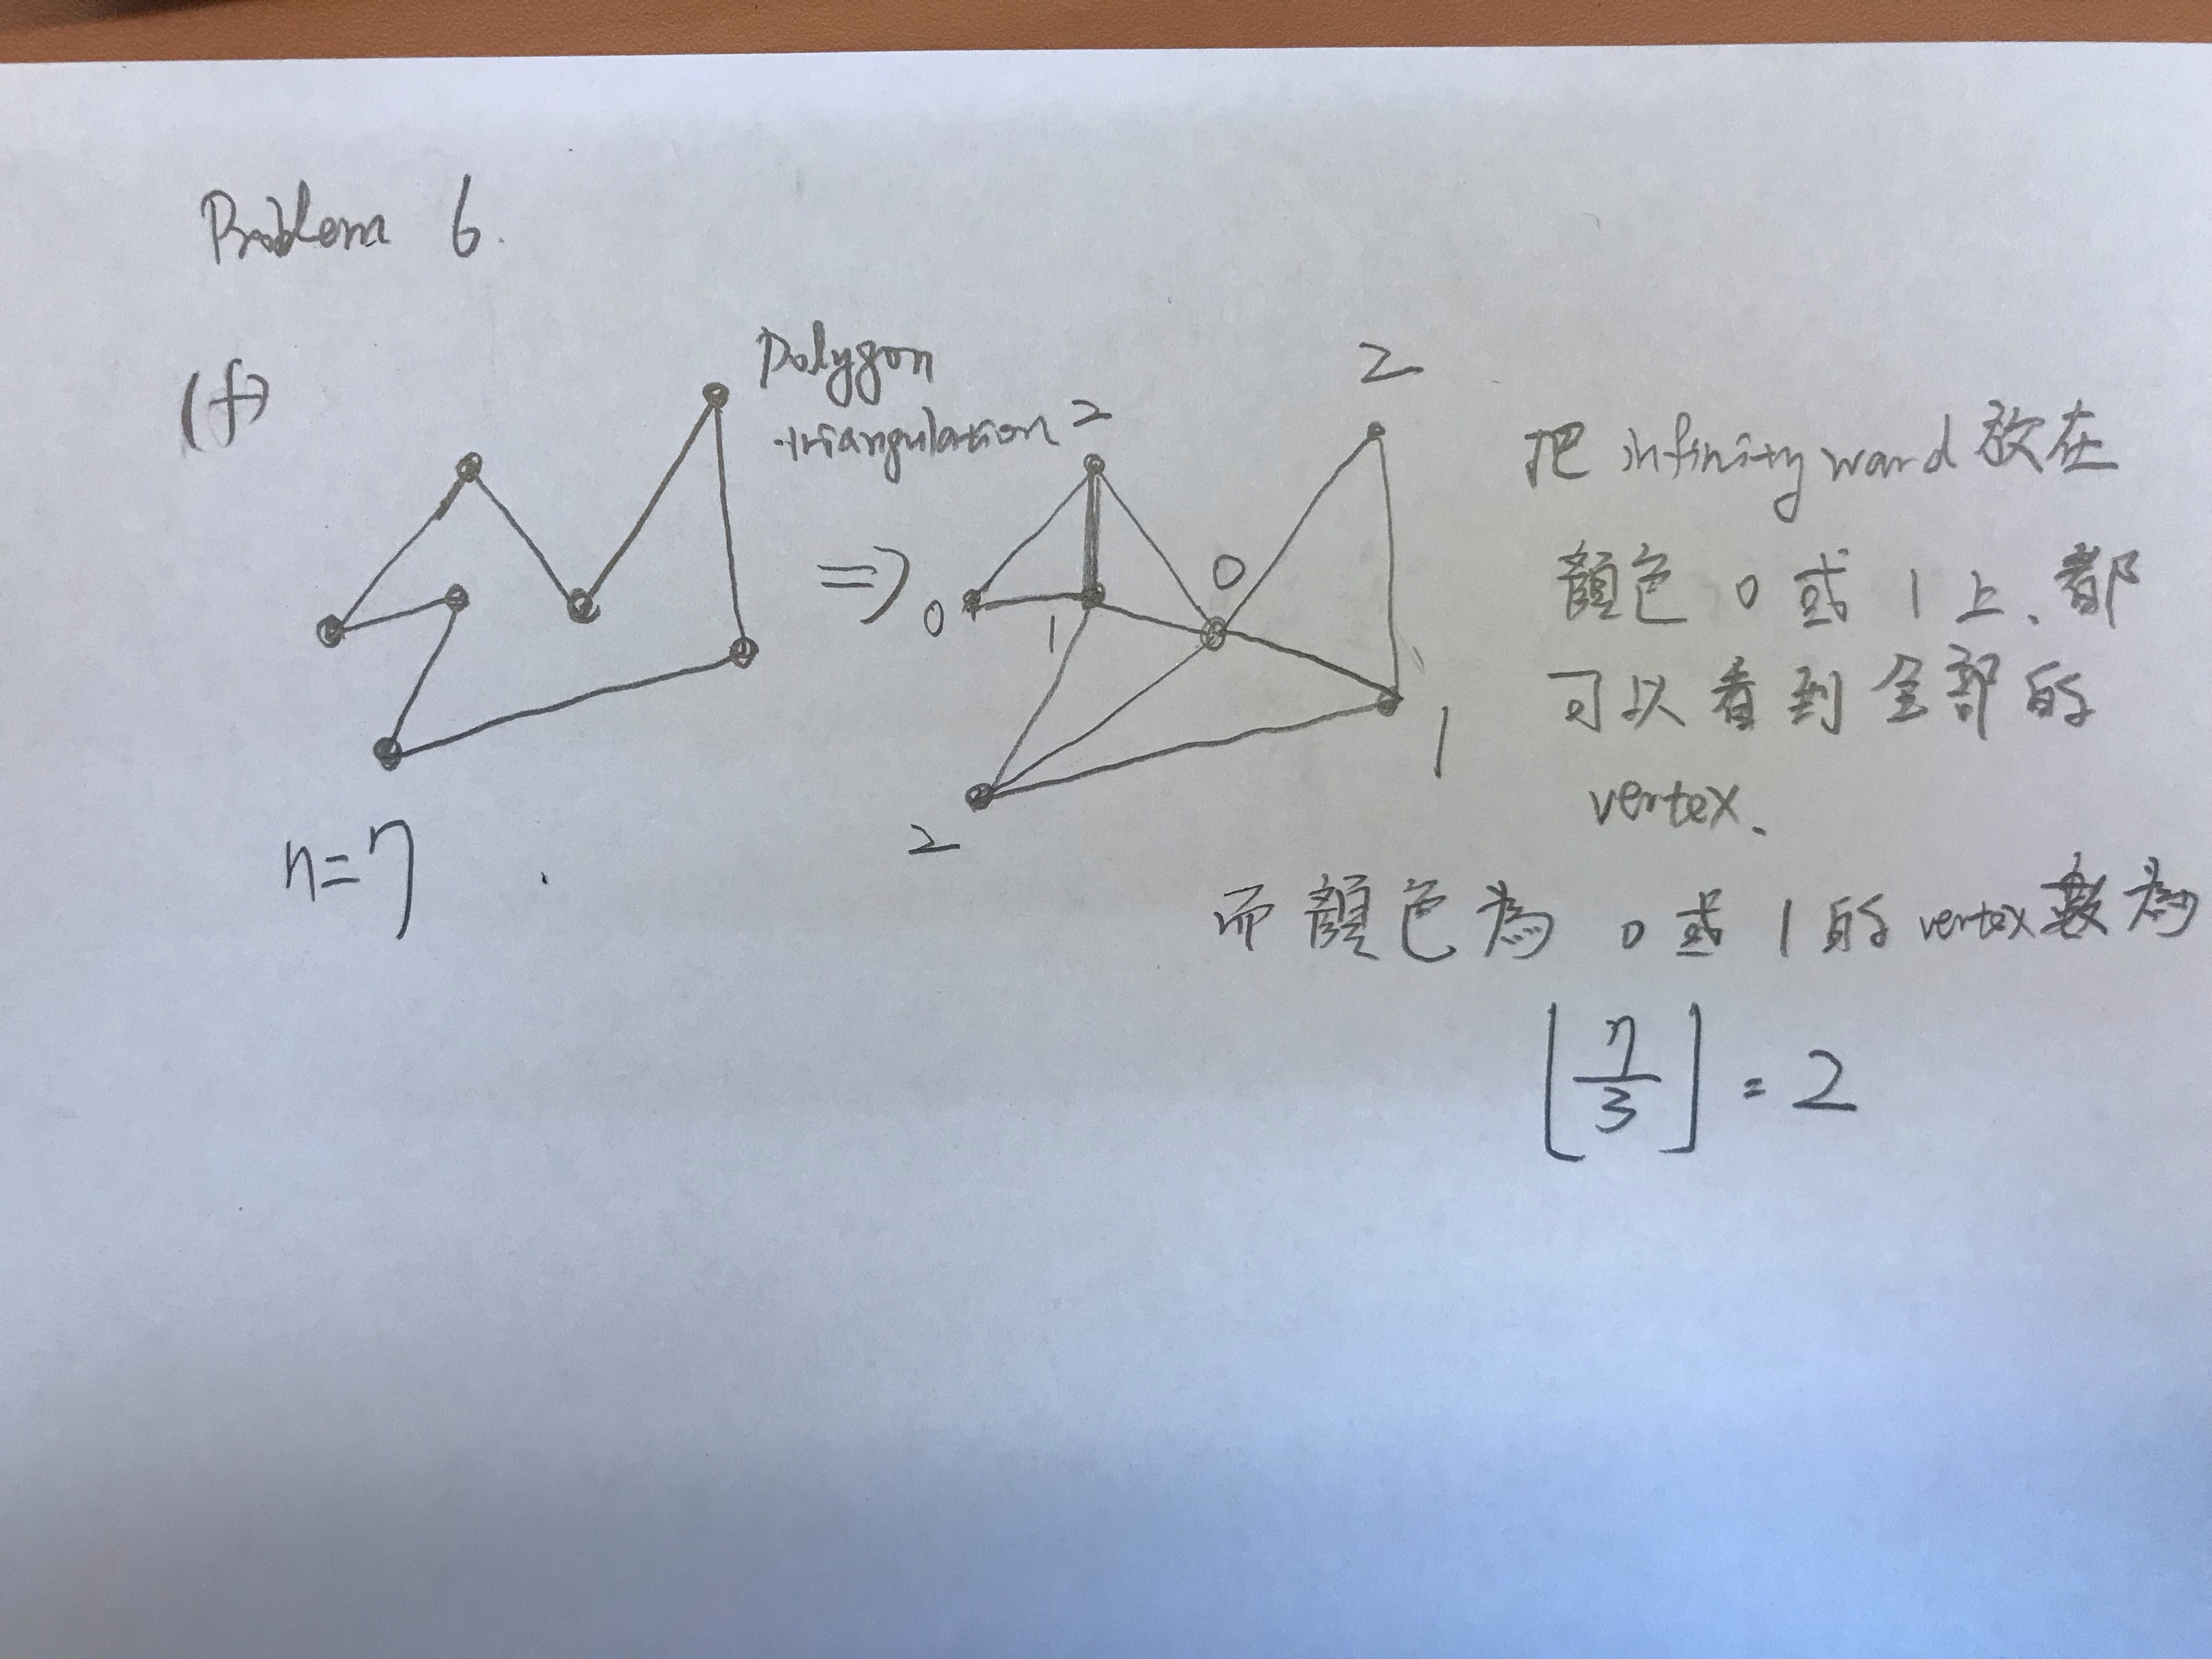 Problem 6.
(f)
n=7
Polygon
triangulation
⇒
0
1
2
0
2
2
1
把 infinity ward 放在
顏色 0 或 1 上、都
可以看到全部的
vertex、
而顏色為 0 或 1 的 vertex 數為
⌊7/3⌋ = 2